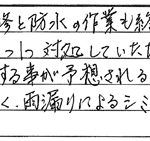 修と防水の作業も終
1つ1つ対処していただ
する事が予想される
く、雨漏りによるシミ